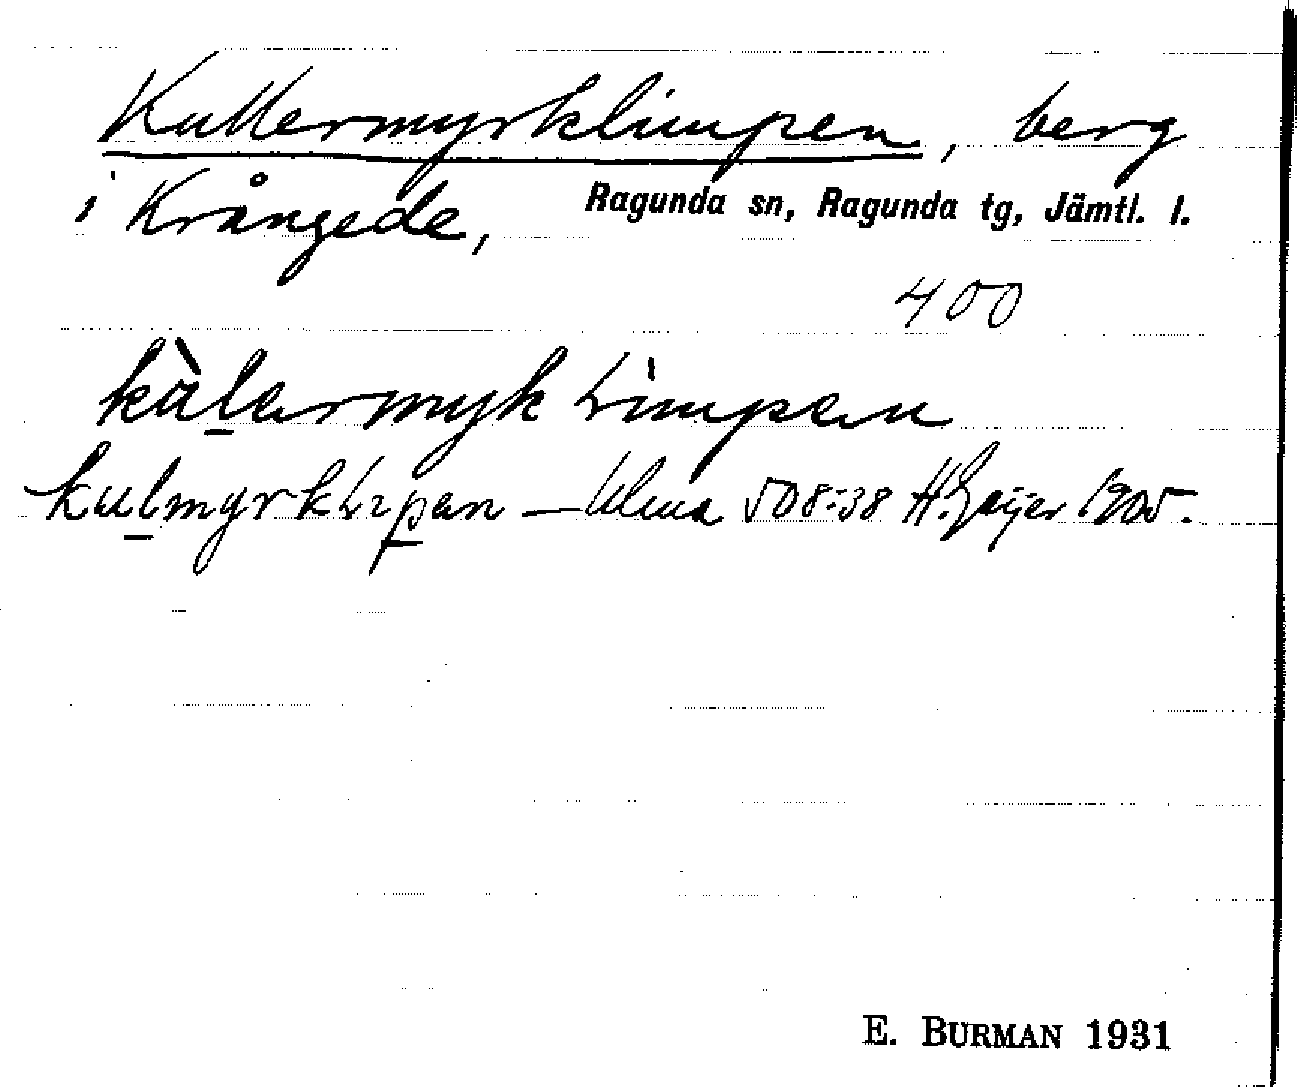 Kullermyrklimpen, berg
i Krångede, Ragunda sn, Ragunda tg, Jämtl. l.
400
kàlermyk limpen
kulmyrk lipen — Ulma 508:38 H. Geijer 1905.
E. BURMAN 1931